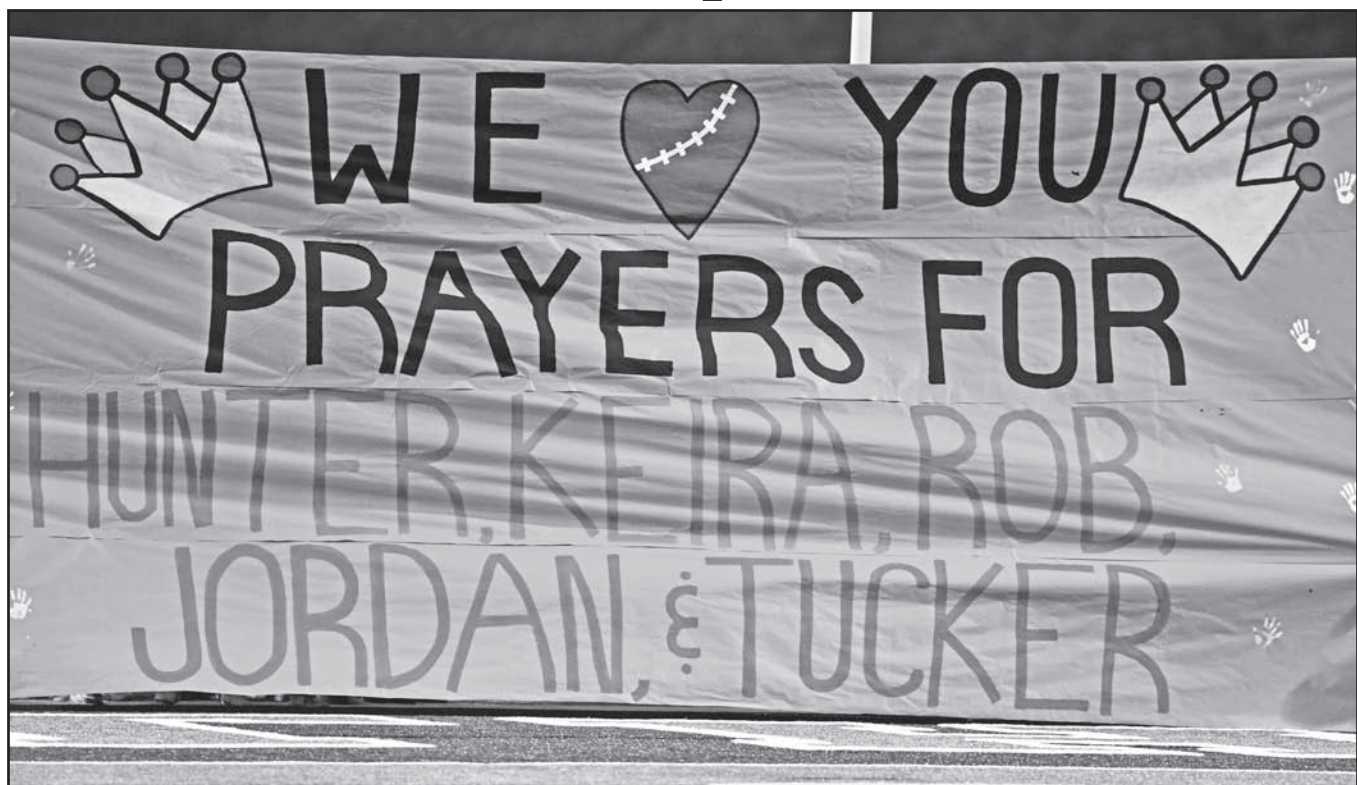 WE ♥ YOU
PRAYERS FOR
HUNTER, KEIRA, ROB,
JORDAN, & TUCKER